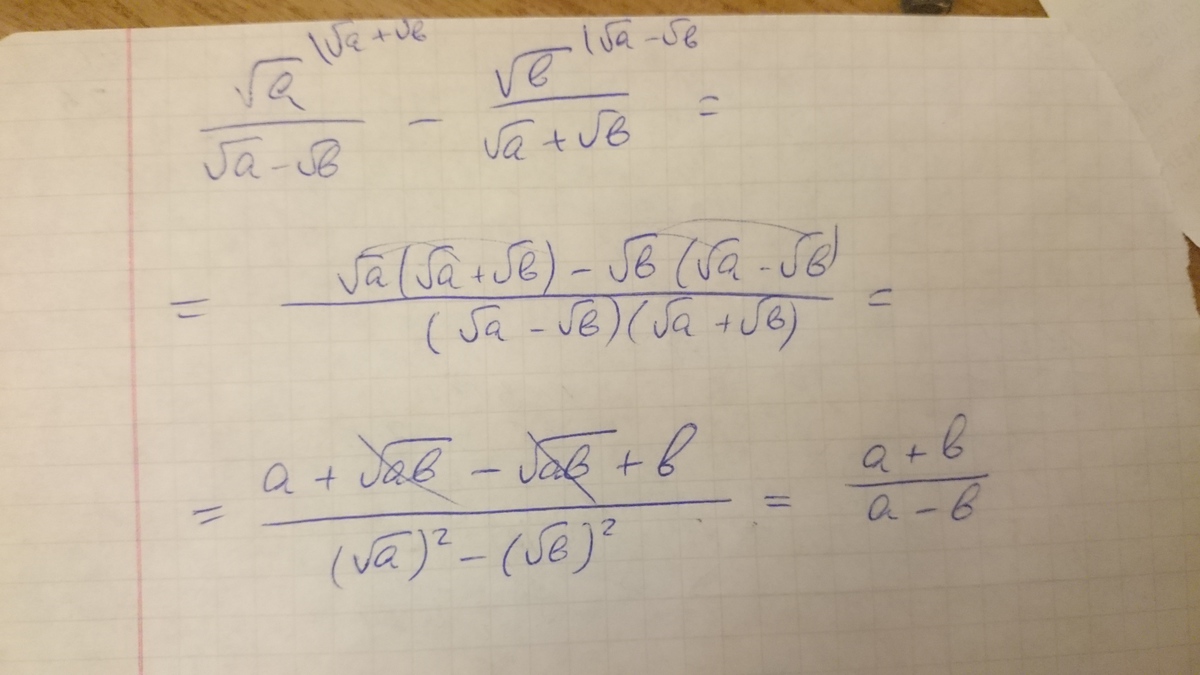 √a \√a+√b / √a-√b - √b \√a-√b / √a+√b =
= √a(√a+√b) - √b(√a-√b) / (√a-√b)(√a+√b) =
= a + √ab - √ab + b / (√a)² - (√b)² = a+b / a-b